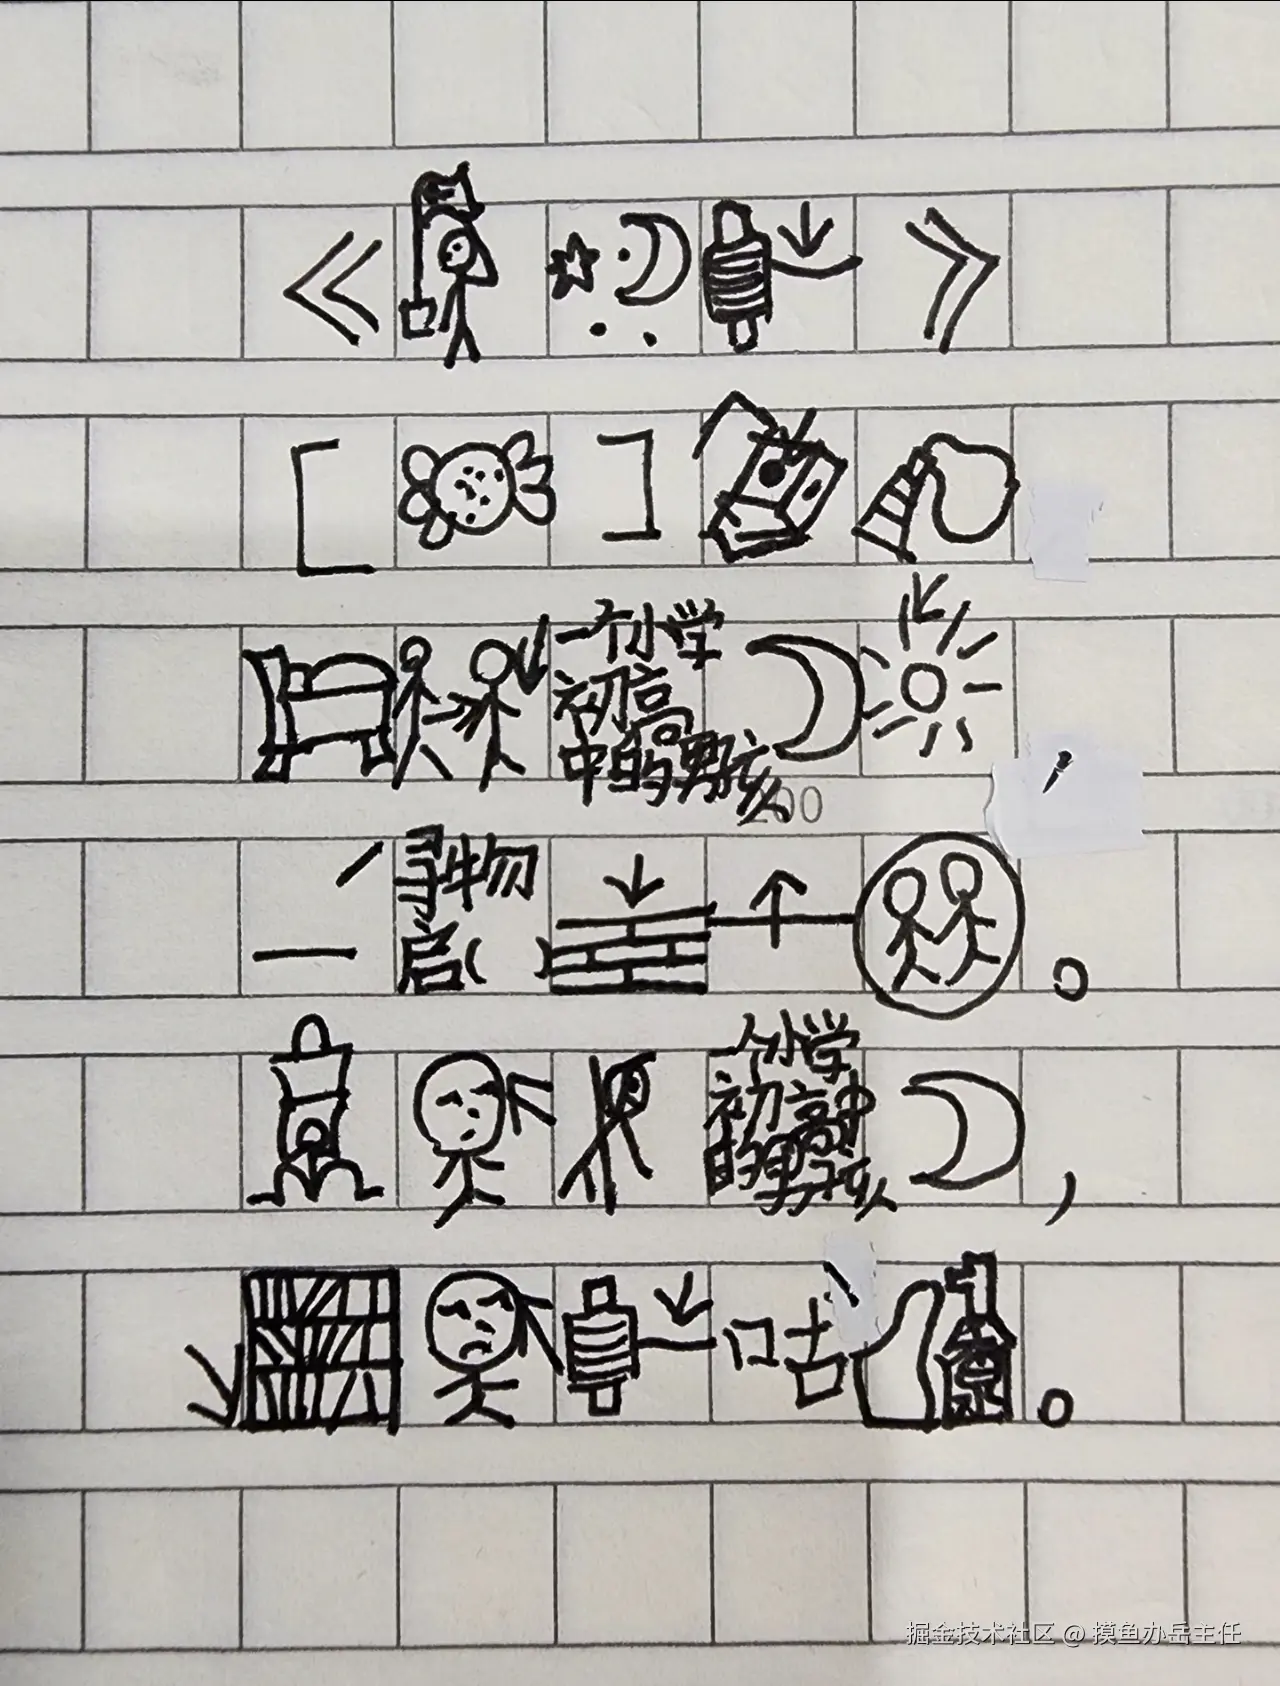 《》
[]
一个小学
初高
中的男孩
200
，
一
寻物
启( )
。
一个小学
初高中
的男孩
，
咕
。
掘金技术社区 @ 摸鱼办岳主任